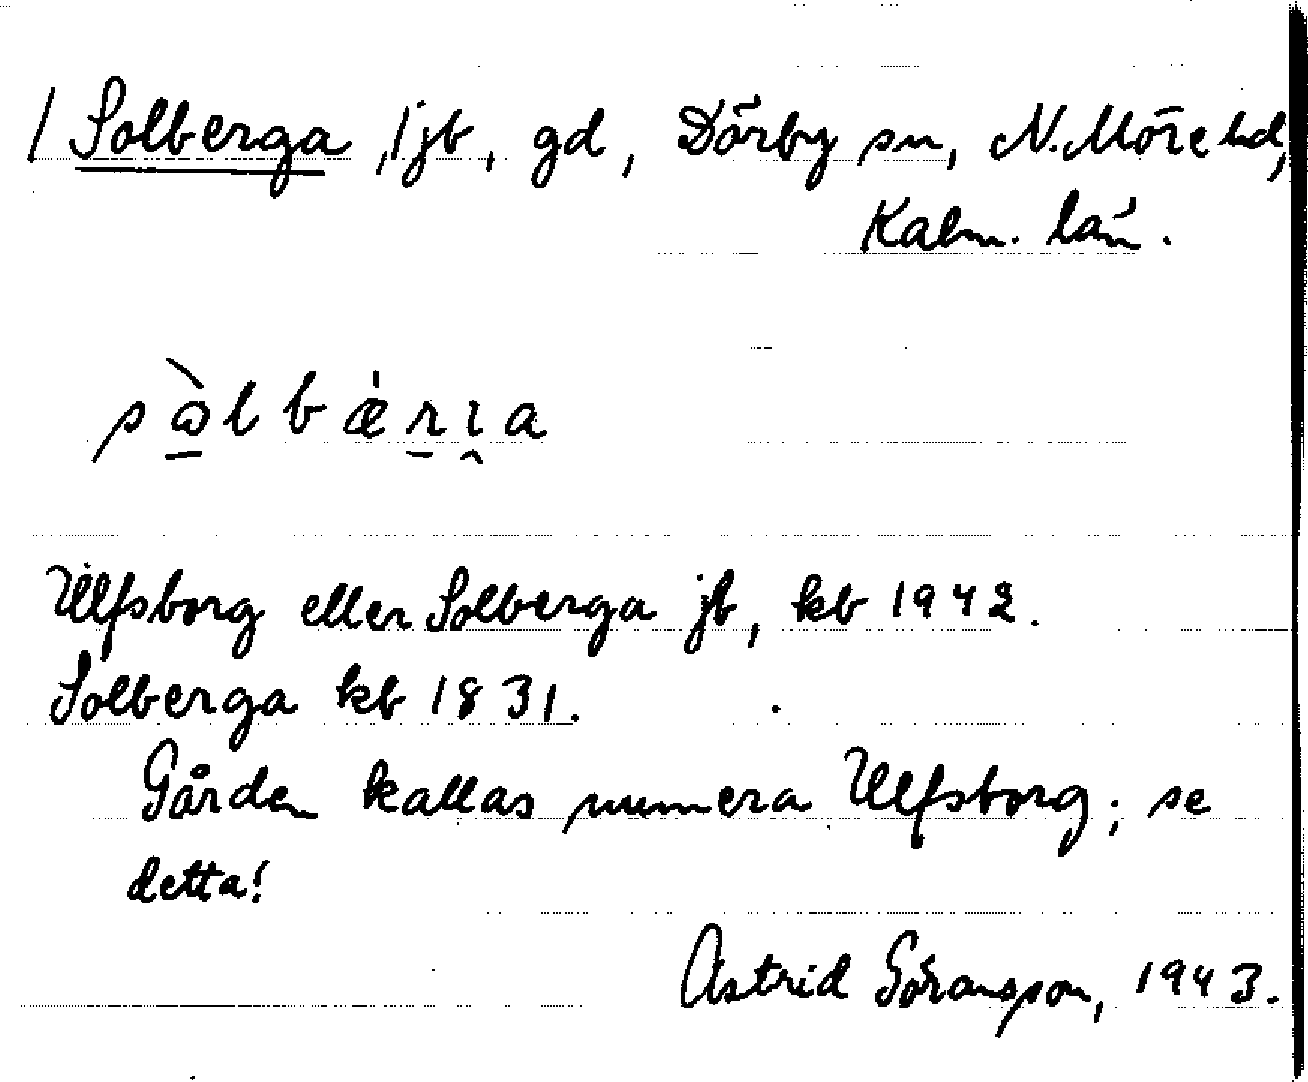 / Solberga, / jb, gd, Dörby sn, N. Möre hd,
Kalm. län.
sɷ̱̀lbæ̍ṟı̭a
Ulfsborg eller Solberga jb, kb 1942.
Solberga kb 1831.
Gården kallas numera Ulfsborg; se
detta!
Astrid Göransson, 1943.